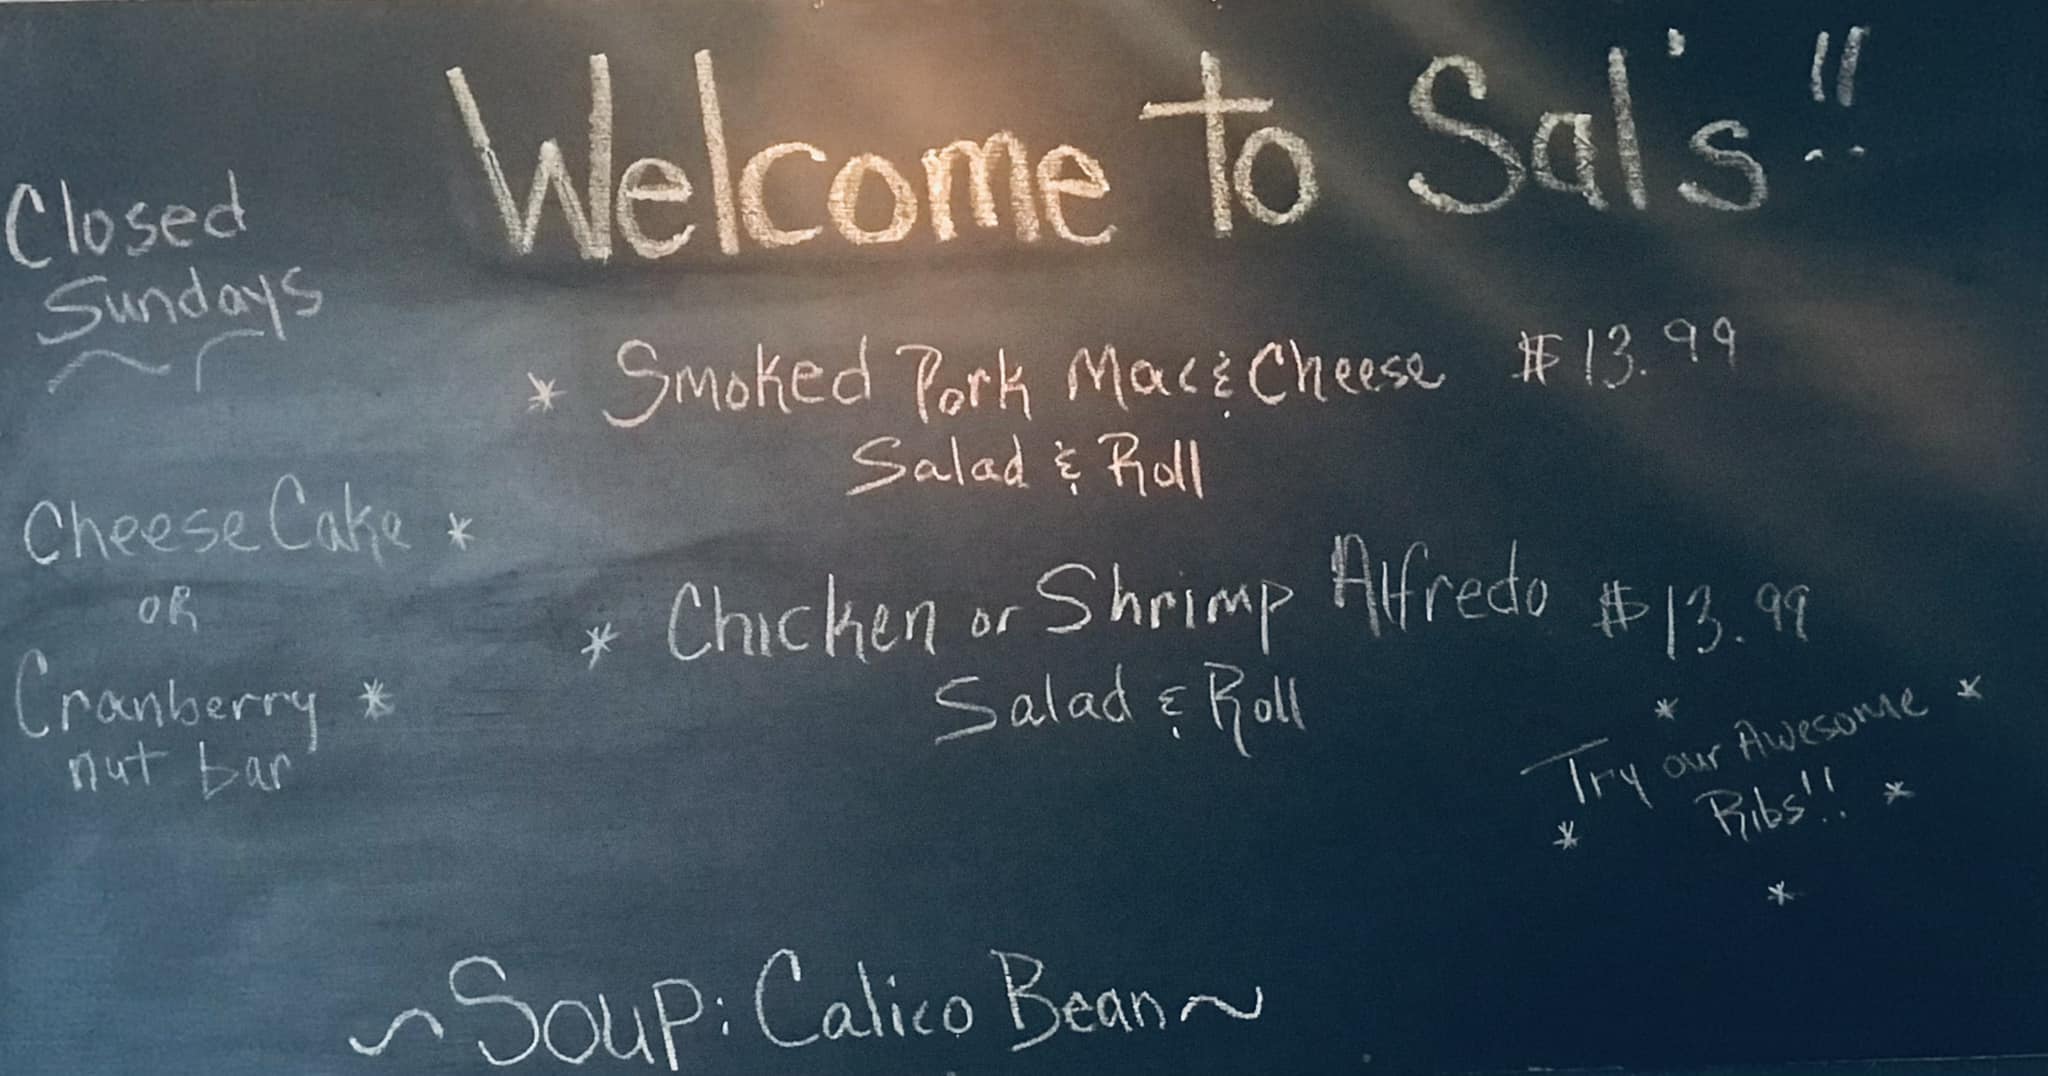 Welcome to Sal's!!
Closed
Sundays
* Smoked Pork Mac & Cheese $13.99
Salad & Roll
CheeseCake *
OR
Cranberry *
nut bar
* Chicken or Shrimp Alfredo $13.99
Salad & Roll
* Try our Awesome *
* Ribs!! *
*
~Soup: Calico Bean~